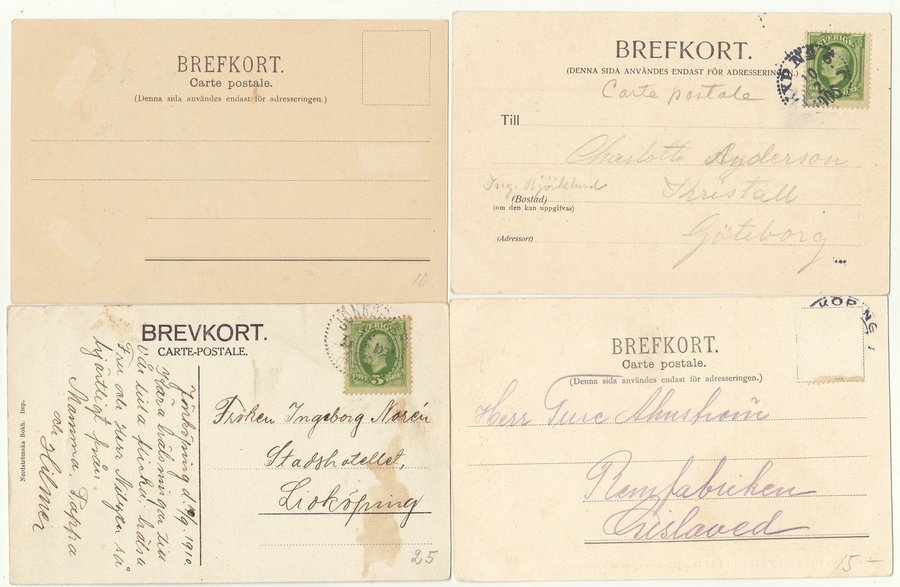 BREFKORT.
Carte postale.
(Denna sida användes endast för adresseringen.)
10
BREFKORT.
(DENNA SIDA ANVÄNDES ENDAST FÖR ADRESSERINGEN.)
Carte postale
SVERIGE
Till
Charlotte Anderson
Ing. Björklund
Kristall
(Bostad)
(om den kan uppgifvas)
Göteborg
(Adressort)
BREVKORT.
CARTE-POSTALE.
SVERIGE
5 ÖRE
Fröken Ingeborg Norén
Stadshotellet,
Lidköping
Jönköping d. 1910.
Kära hälsningar till
vår lilla flicka! hälsa
Fru och Herr Nilzén så
hjärtligt från
Mamma, Pappa
och Hilmer
Nordströmska Bokh. Imp.
25
KÖPING
BREFKORT.
Carte postale.
(Denna sida användes endast för adresseringen.)
Herr Ture Ahnström
Remfabriken
Gislaved
15 –